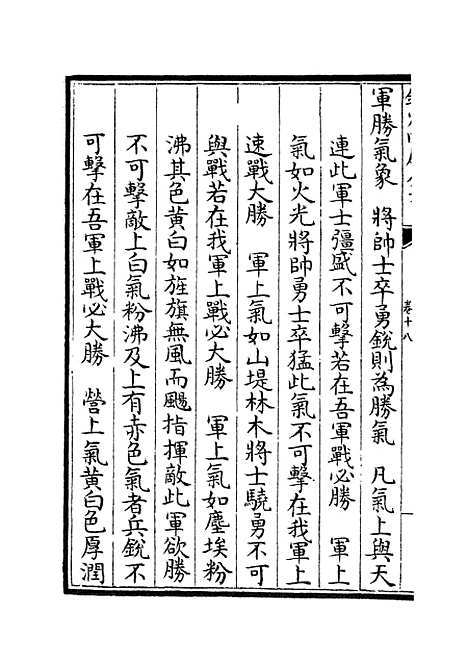 卷十八
軍勝氣象 將帥士卒勇銳則為勝氣 凡氣上與天
連此軍士彊盛不可擊若在吾軍戰必勝 軍上
氣如火光將帥勇士卒猛此氣不可擊在我軍上
速戰大勝 軍上氣如山堤林木將士驍勇不可
與戰若在我軍上戰必大勝 軍上氣如塵埃粉
沸其色黃白如旌旗無風而颺指揮敵此軍欲勝
不可擊敵上白氣粉沸及上有赤色氣者兵銳不
可擊在吾軍上戰必大勝 營上氣黃白色厚潤